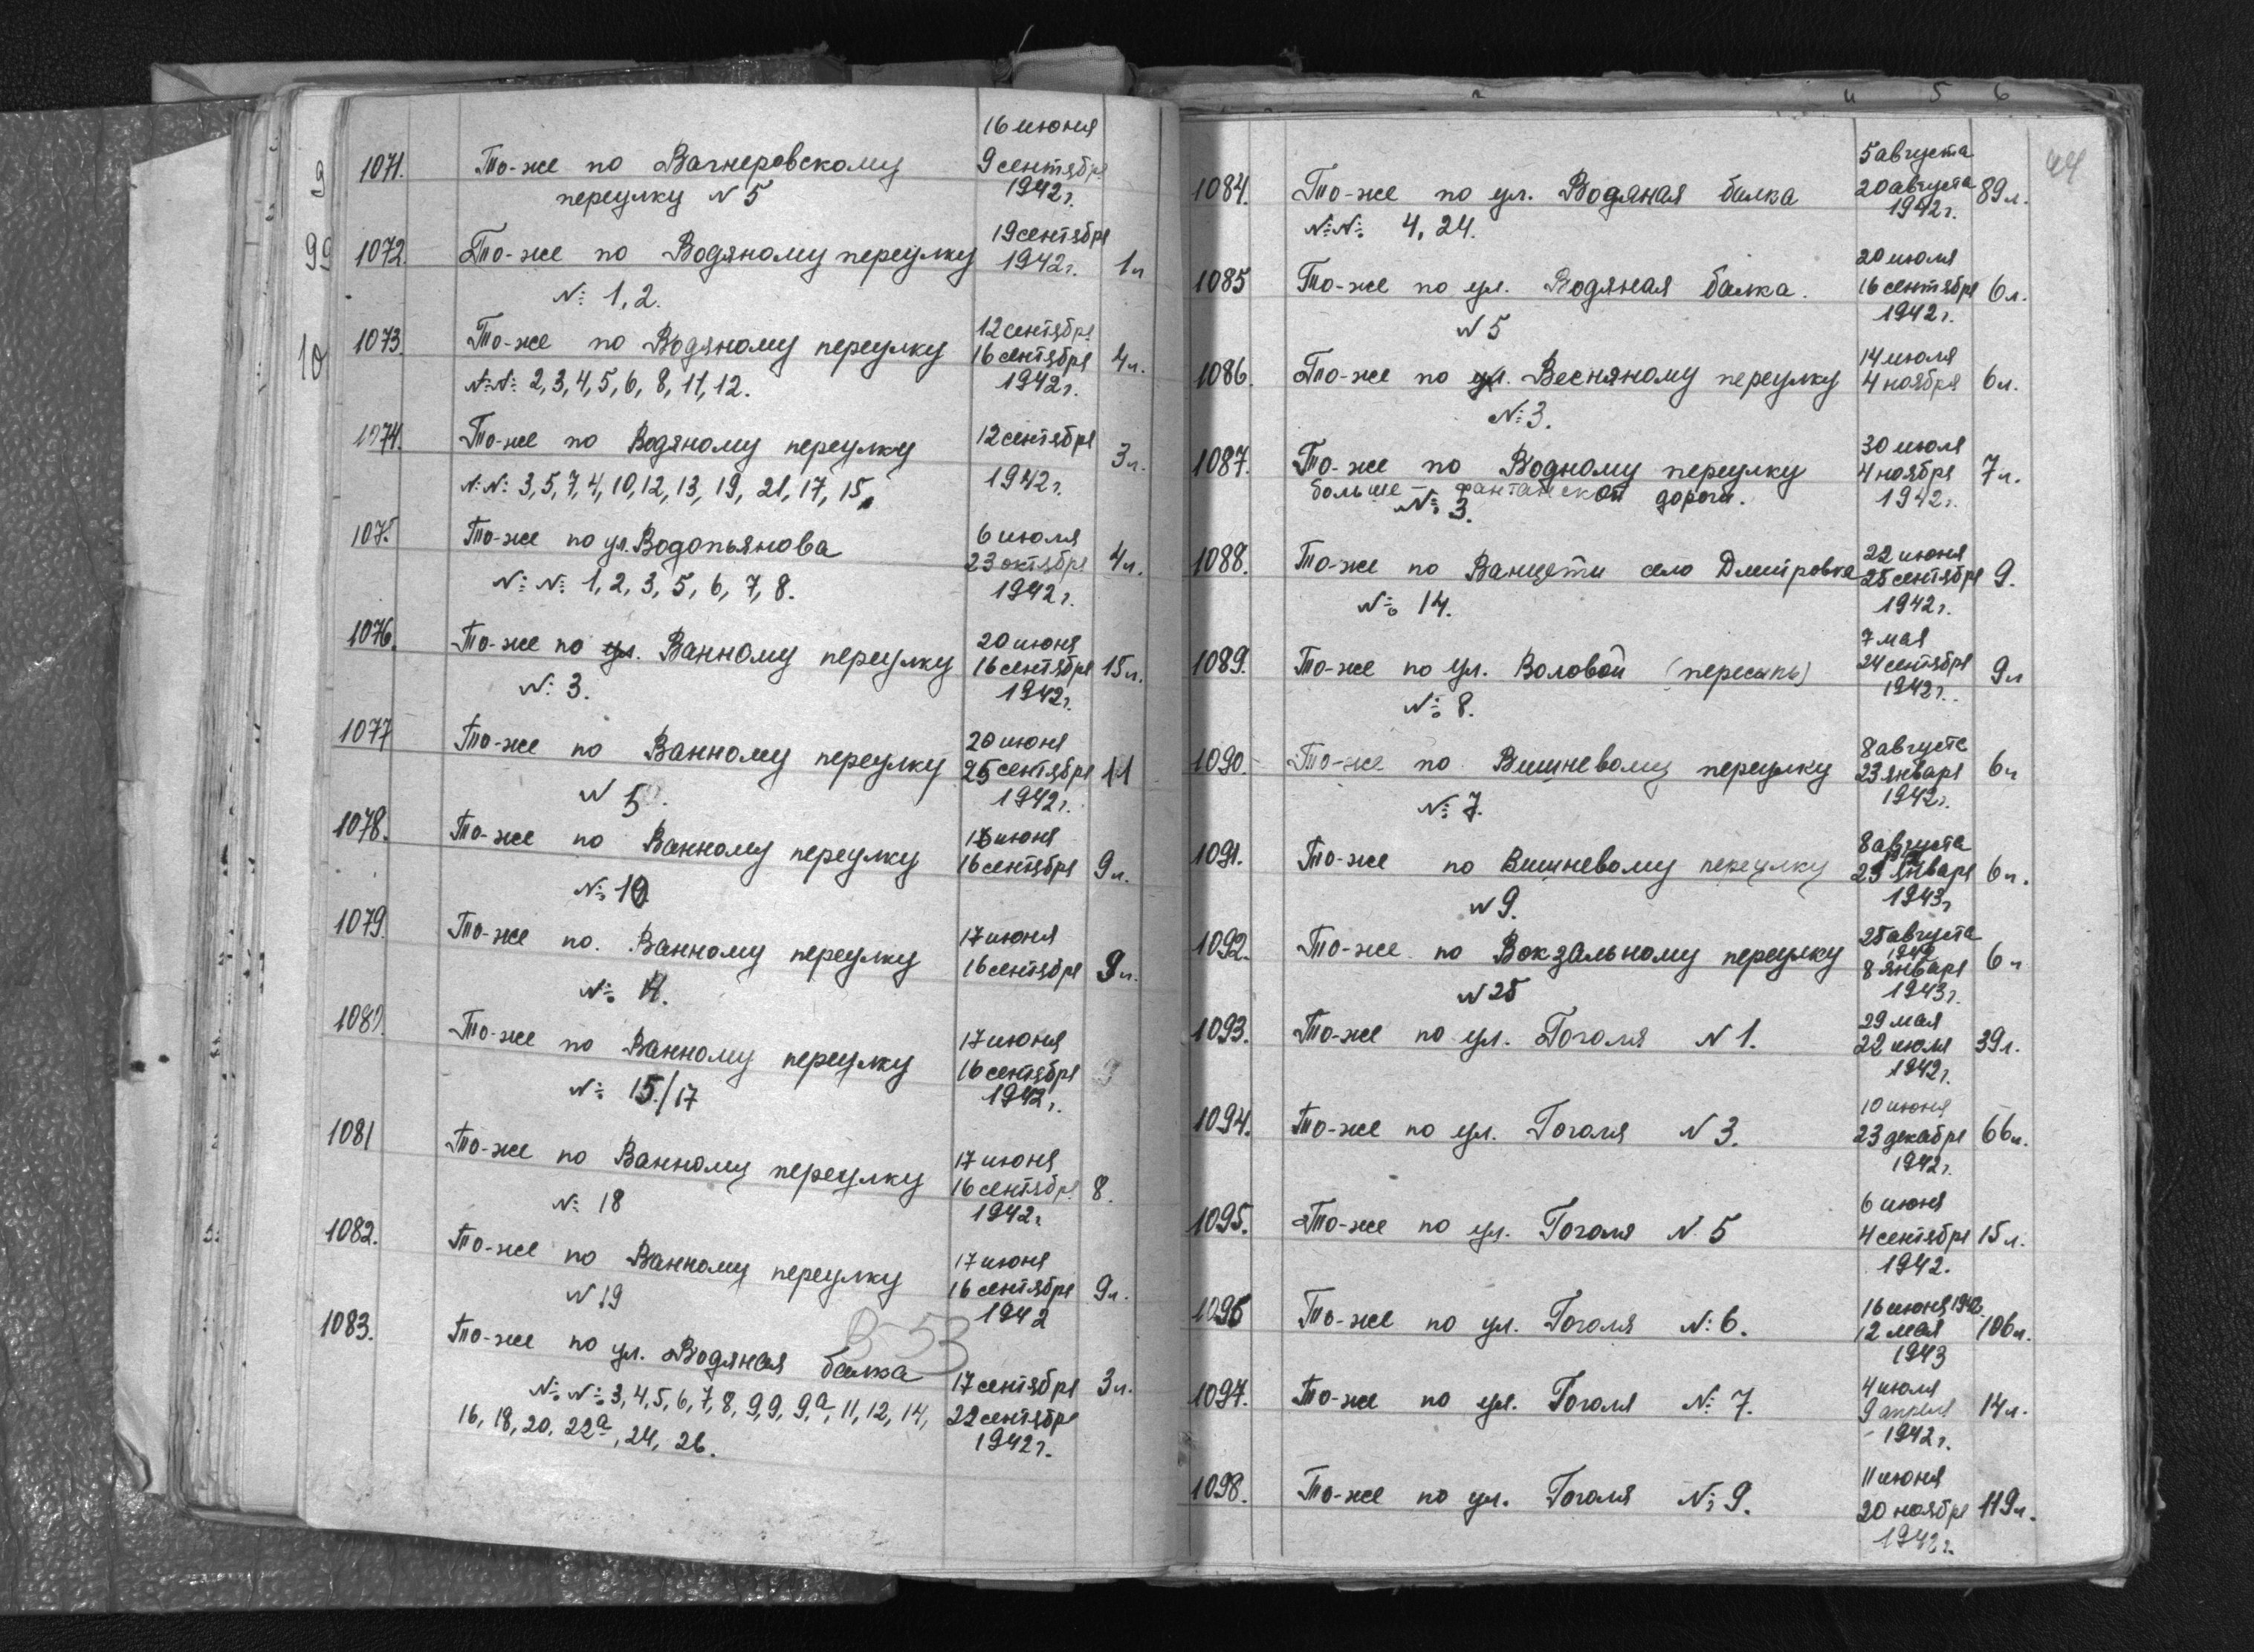 16 июня
9
1071.
То-же по Вагнеровскому
9 сентября
переулку N 5
1942г.
99
1072.
То-же по Водяному переулку
19 сентября
1942г.
1л
№ 1, 2.
10
1073.
То-же по Водяному переулку
12 сентябр.
16 сентября
4л.
№№ 2, 3, 4, 5, 6, 8, 11, 12.
1942г.
1074.
То-же по Водяному переулку
12 сентября
3л.
№№ 3, 5, 7, 4, 10, 12, 13, 19, 21, 17, 15.
1942г.
1075.
То-же по ул. Водопьянова
6 июля
23 октября
4л.
№ № 1, 2, 3, 5, 6, 7, 8.
1942г.
1076.
То-же по ул. Ванному переулку
20 июня
16 сентября
15л.
№ 3.
1942г.
1077
То-же по Ванному переулку
20 июня
25 сентября
11
N 5
1942г.
1078.
То-же по Ванному переулку
16 сентября
9л.
№ 10
1079.
То-же по. Ванному переулку
17 июня
16 сентября
9л.
№
1080.
То-же по Ванному переулку
17 июня
16 сентября
9
№ 15/17
1942г.
1081
То-же по Ванному переулку
17 июня
16 сентябр.
8.
№ 18
1942г
1082.
То-же по Ванному переулку
17 июня
16 сентября
9л.
N 19
1942
В-53
1083.
То-же по ул. Водяная балка
17 сентября
3л.
№ № 3, 4, 5, 6, 7, 8, 9, 9, 9,а 11, 12, 14,
22 сентября
16, 18, 20, 22а, 24, 26.
1942г.
5 6
44
5 августа
1084.
То-же по ул. Водяная балка
20 августа
89л.
1942г.
№№ 4, 24.
20 июля
1085
То-же по ул. Водяная балка.
16 сентября
6л.
N 5
1942г.
14 июля
1086.
То-же по ул. Весняному переулку
4 ноября
6л.
№ 3.
30 июля
1087.
То-же по Водному переулку
4 ноября
7л.
больше-фантанской дороги.
1942г.
№ 3.
22 июня
1088.
То-же по Ванцети село Дмитровка
25 сентября
9.
№ 14.
1942г.
7 мая
1089.
То-же по ул. Воловой (пересыпь)
24 сентября
9л
№ 8.
1942г.
8 августа
1090.
То-же по Вишневому переулку
23 января
6л
№ 7.
1942г.
8 августа
1091.
То-же по Вишневому переулку
23 января
6л.
N 9.
1943г
25 августа
1942
1092.
То-же по Вокзальному переулку
8 января
6л
N 25
1943г.
29 мая
1093.
То-же по ул. Гоголя N 1.
22 июля
39л.
1942г.
10 июня
1094.
То-же по ул. Гоголя N 3.
23 декабря
66л.
1942г.
6 июня
1095.
То-же по ул. Гоголя N 5
4 сентября
15л.
1942.
16 июня 1942
1096
То-же по ул. Гоголя № 6.
12 мая
106л.
1943
4 июля
1097.
То-же по ул. Гоголя № 7.
9 апреля
14л.
1942г.
11 июня
1098.
То-же по ул. Гоголя № 9.
20 ноября
119л.
1942г.